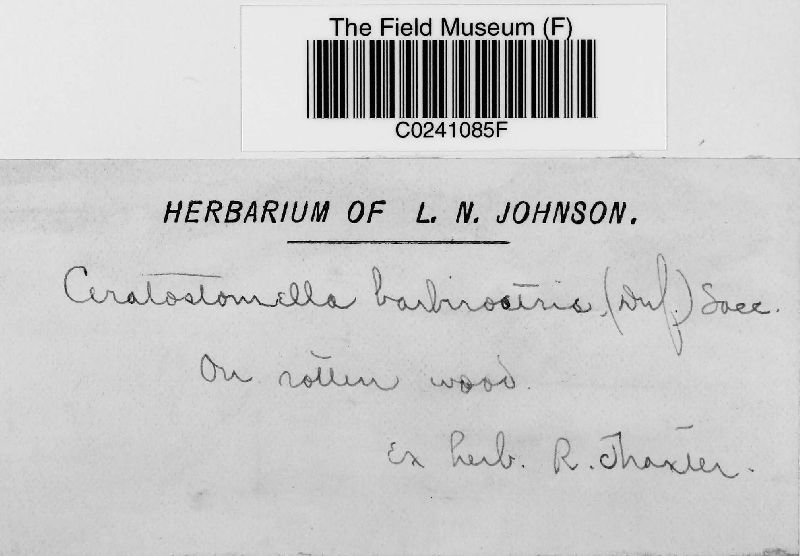 The Field Museum (F)
C0241085F
HERBARIUM OF L. N. JOHNSON.
Ceratostomella barbirostris (Duf.) Sacc.
On rotten wood.
Ex herb. R. Thaxter.